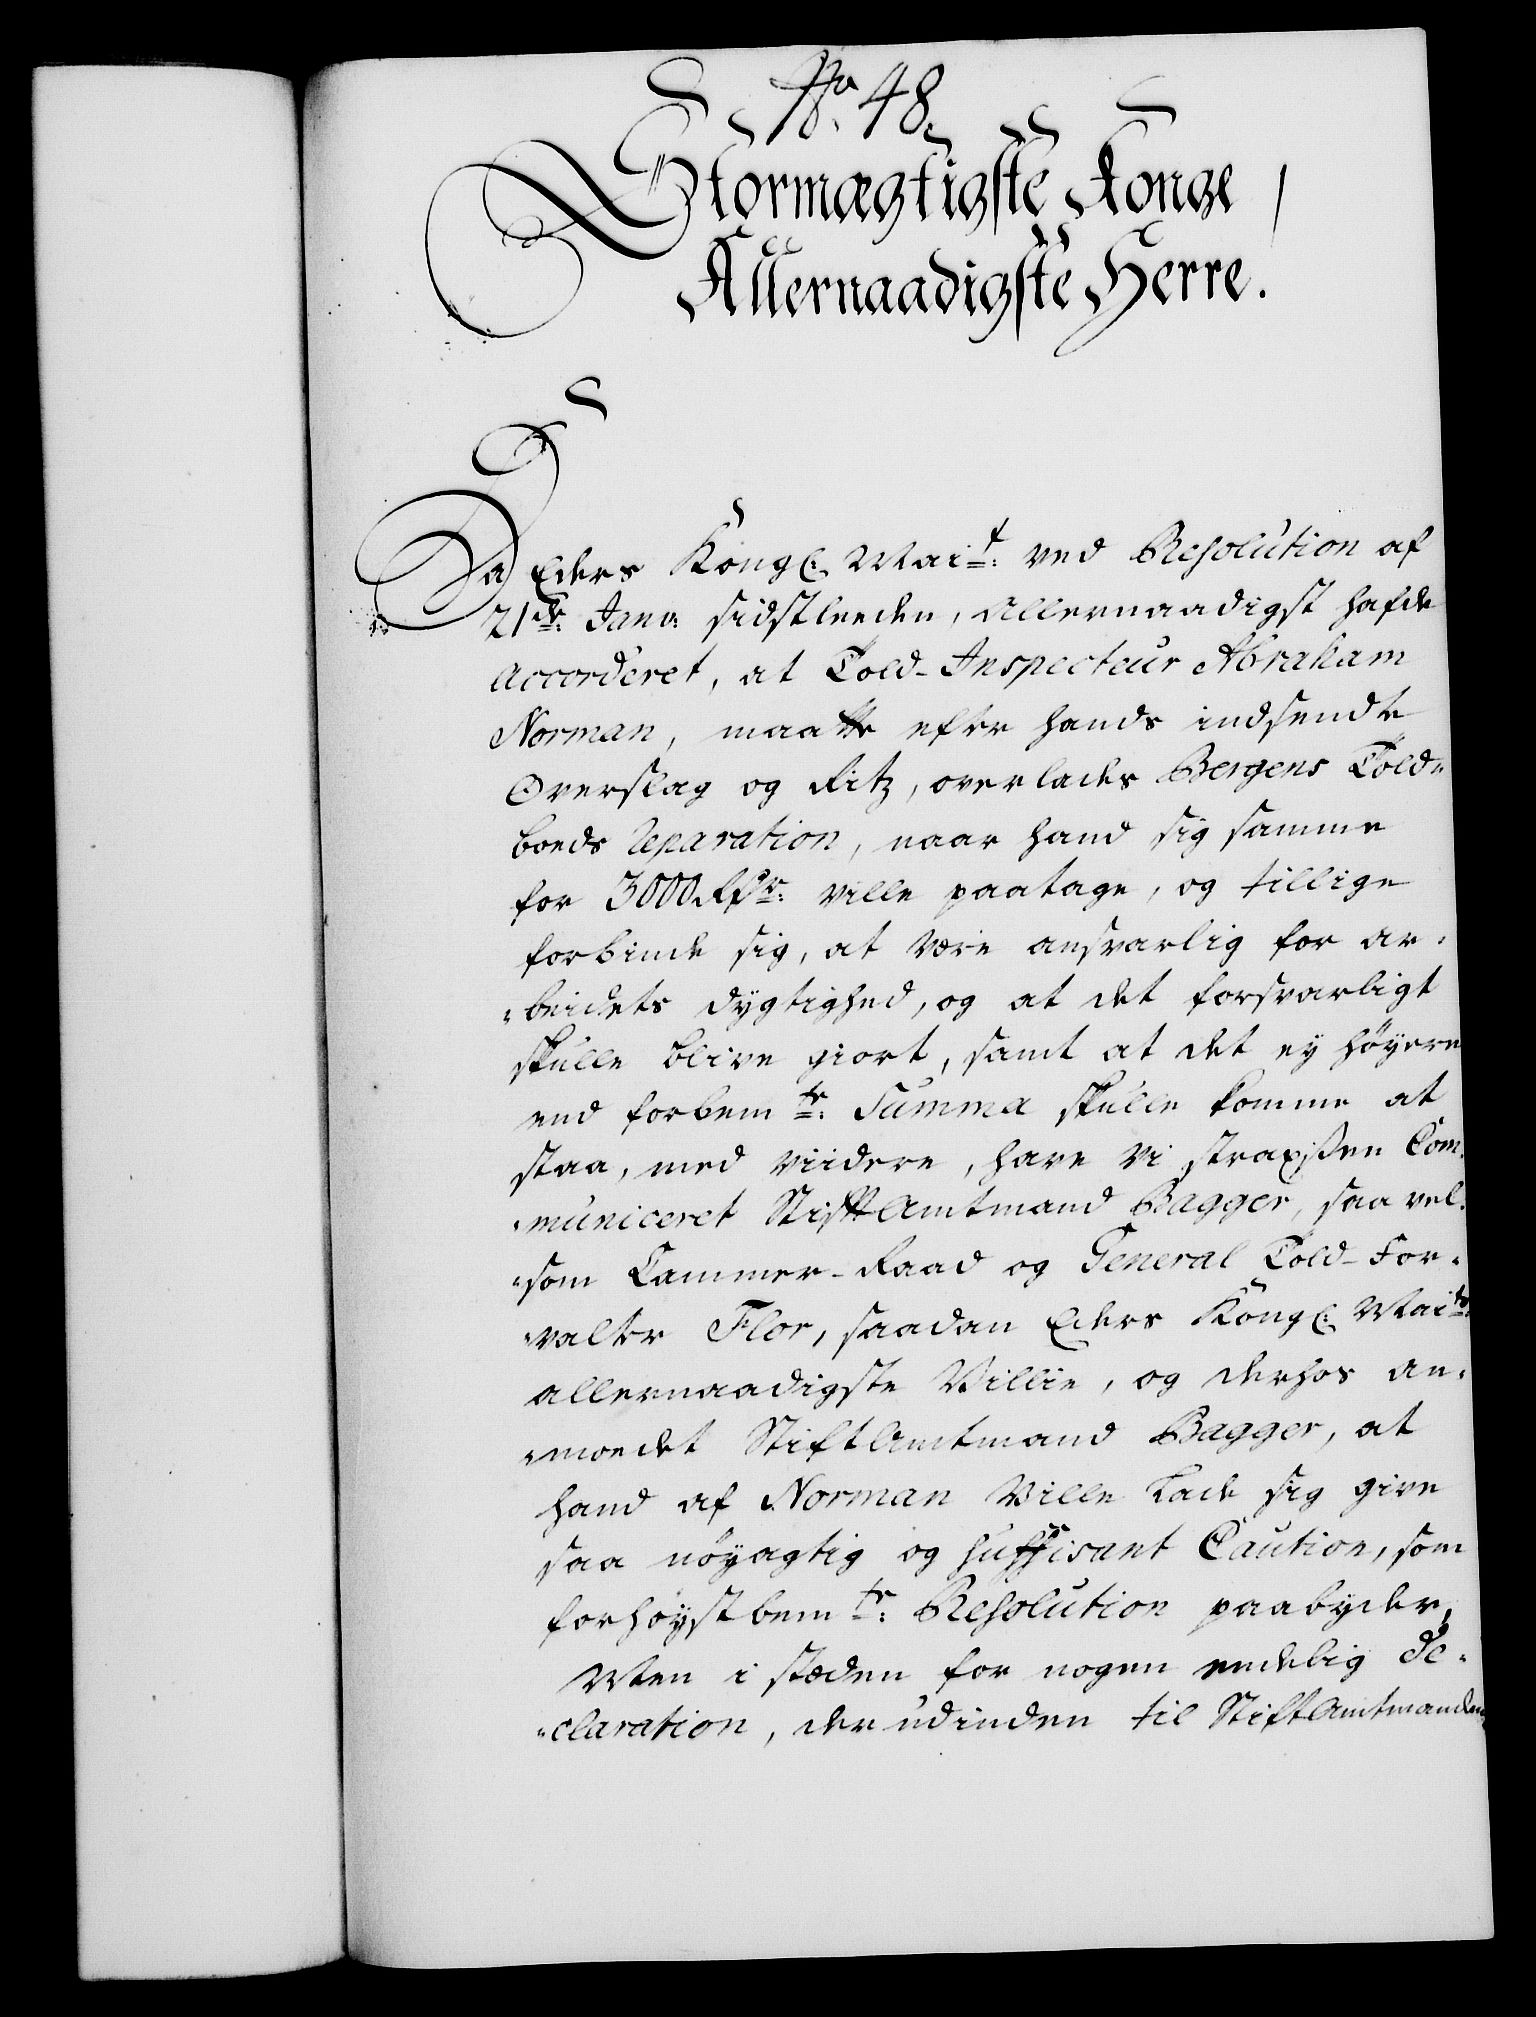 No. 48.
Stormægtigste Konge
Allernaadigste Herre!
Da Eders Kongl. Mait: ved Resolution af
21de: Janv: sidstleeden, allernaadigst hafde
accorderet, at Told-Inspecteur Abraham
Norman, maatte efter hands indsendte
Overslag og Ritz, overlades Bergens Told-
boeds Reparation, naar hand sig samme
for 3000 Rdr: ville paatage, og tillige
forbinde sig, at være ansvarlig for ar-
beidets dygtighed, og at det forsvarligt
skulle blive giort, samt at det ey höyere
end forbemte: Summa skulle komme at
staa, med viidere, have vi straxsen Com-
municeret Stiftamtmand Bagger, saa vel-
som Cammer-Raad og General Told-For-
valter Flor, saadan Eders Kongl. Maits:
allernaadigste Villie, og derhos an-
moedet Stiftamtmand Bagger, at
hand af Norman ville lade sig give
saa nöyagtig og suffisant Caution, som
forhöystbemte: Resolution paabyder,
Men i stæden for nogen endelig De-
claration, der udinden til Stiftamtmanden